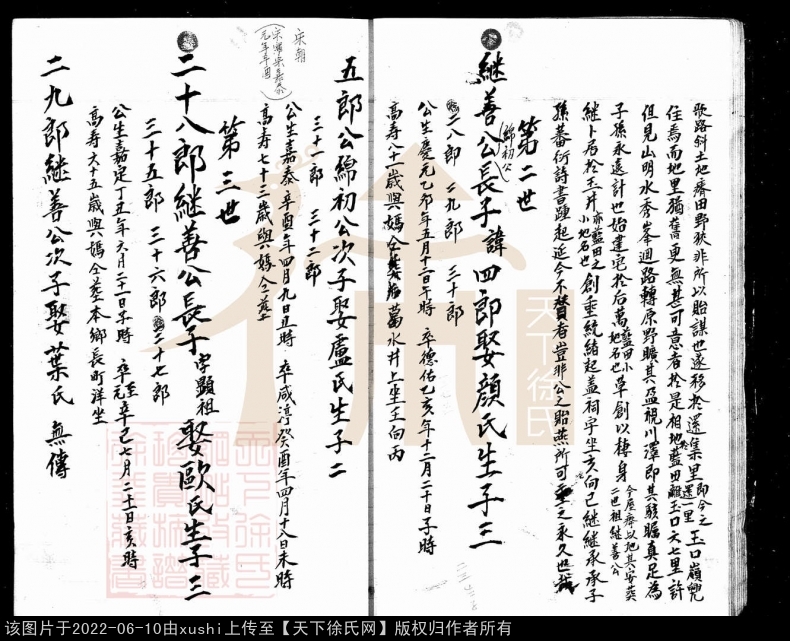 歌路斜土地瘠田野狹非所以貽謀也遂移於還集里即今之玉口嶺兜
住焉而地里猶舊更無甚可意者於是相地藍田離玉口六七里許
還一里
但見山明水秀峯迴路轉原野瞻其盈視川澤即其駭矚真足為
子孫永遠計也始建宅於后萬藍田小地名也草創以棲身
今屋廢以地其安葬二世祖継善公
継卜居於玉井亦藍田之小地名也創垂統緒起蓋祠宇坐亥向巳継継承承子
孫蕃衍詩書踵起延今不替者豈非公之貽燕所可垂之永久也哉
第二世
継善公長子諱四郎娶顏氏生子三
(綿初公)
二八郎 二九郎 三十郎
公生慶元乙卯年五月十一日午時 卒德佑乙亥年十二月二十日子時
高寿八十一歲與媽仝葬萬水井上坐壬向丙
五郎公綿初公次子娶盧氏生子二
宋朝
(宋寧宋嘉泰元年辛酉)
三十一郎 三十二郎
公生嘉泰辛酉年四月九日丑時 卒咸淳癸酉年四月十八日未時
高寿七十三歲與媽仝葬
第三世
二十八郎継善公長子字顯祖娶歐氏生子三
三十五郎 三十六郎 三十七郎
公生嘉定丁丑年六月二十一日子時 卒至元辛巳七月二十二日亥時
高寿六十五歲與媽仝葬本鄉長町洋坐
二九郎継善公次子娶葉氏 無傳
天下徐氏
该图片于2022-06-10由xushi上传至【天下徐氏网】版权归作者所有